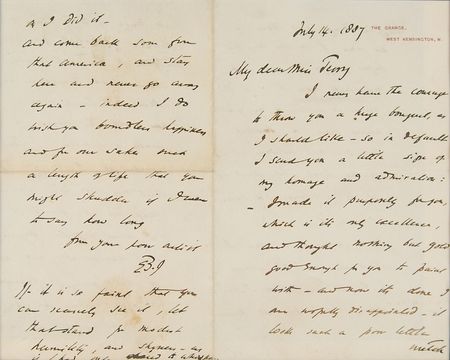 July 14. 1887
THE GRANGE,
WEST KENSINGTON, W.
My dear Miss Terry
I never have the courage
to throw you a huge bouquet, as
I should like - so in default
I send you a little sign of
my homage and admiration:
- I made it purposely for you,
which is its only excellence,
and thought nothing but gold
good enough for you to paint
with - and now it's done I
am woefully disappointed - it
looks such a poor little
wretch
as I did it -
and come back soon from
that America, and stay
here and never go away
again - indeed I do
wish you boundless happiness
and for our sakes such
a length of life that you
might shudder if I were
to say how long
from your poor artist
E B-J
If it is so faint that you
can scarcely see it, let
that stand for modest
humility, and shyness - as
if I had only dared to whisper